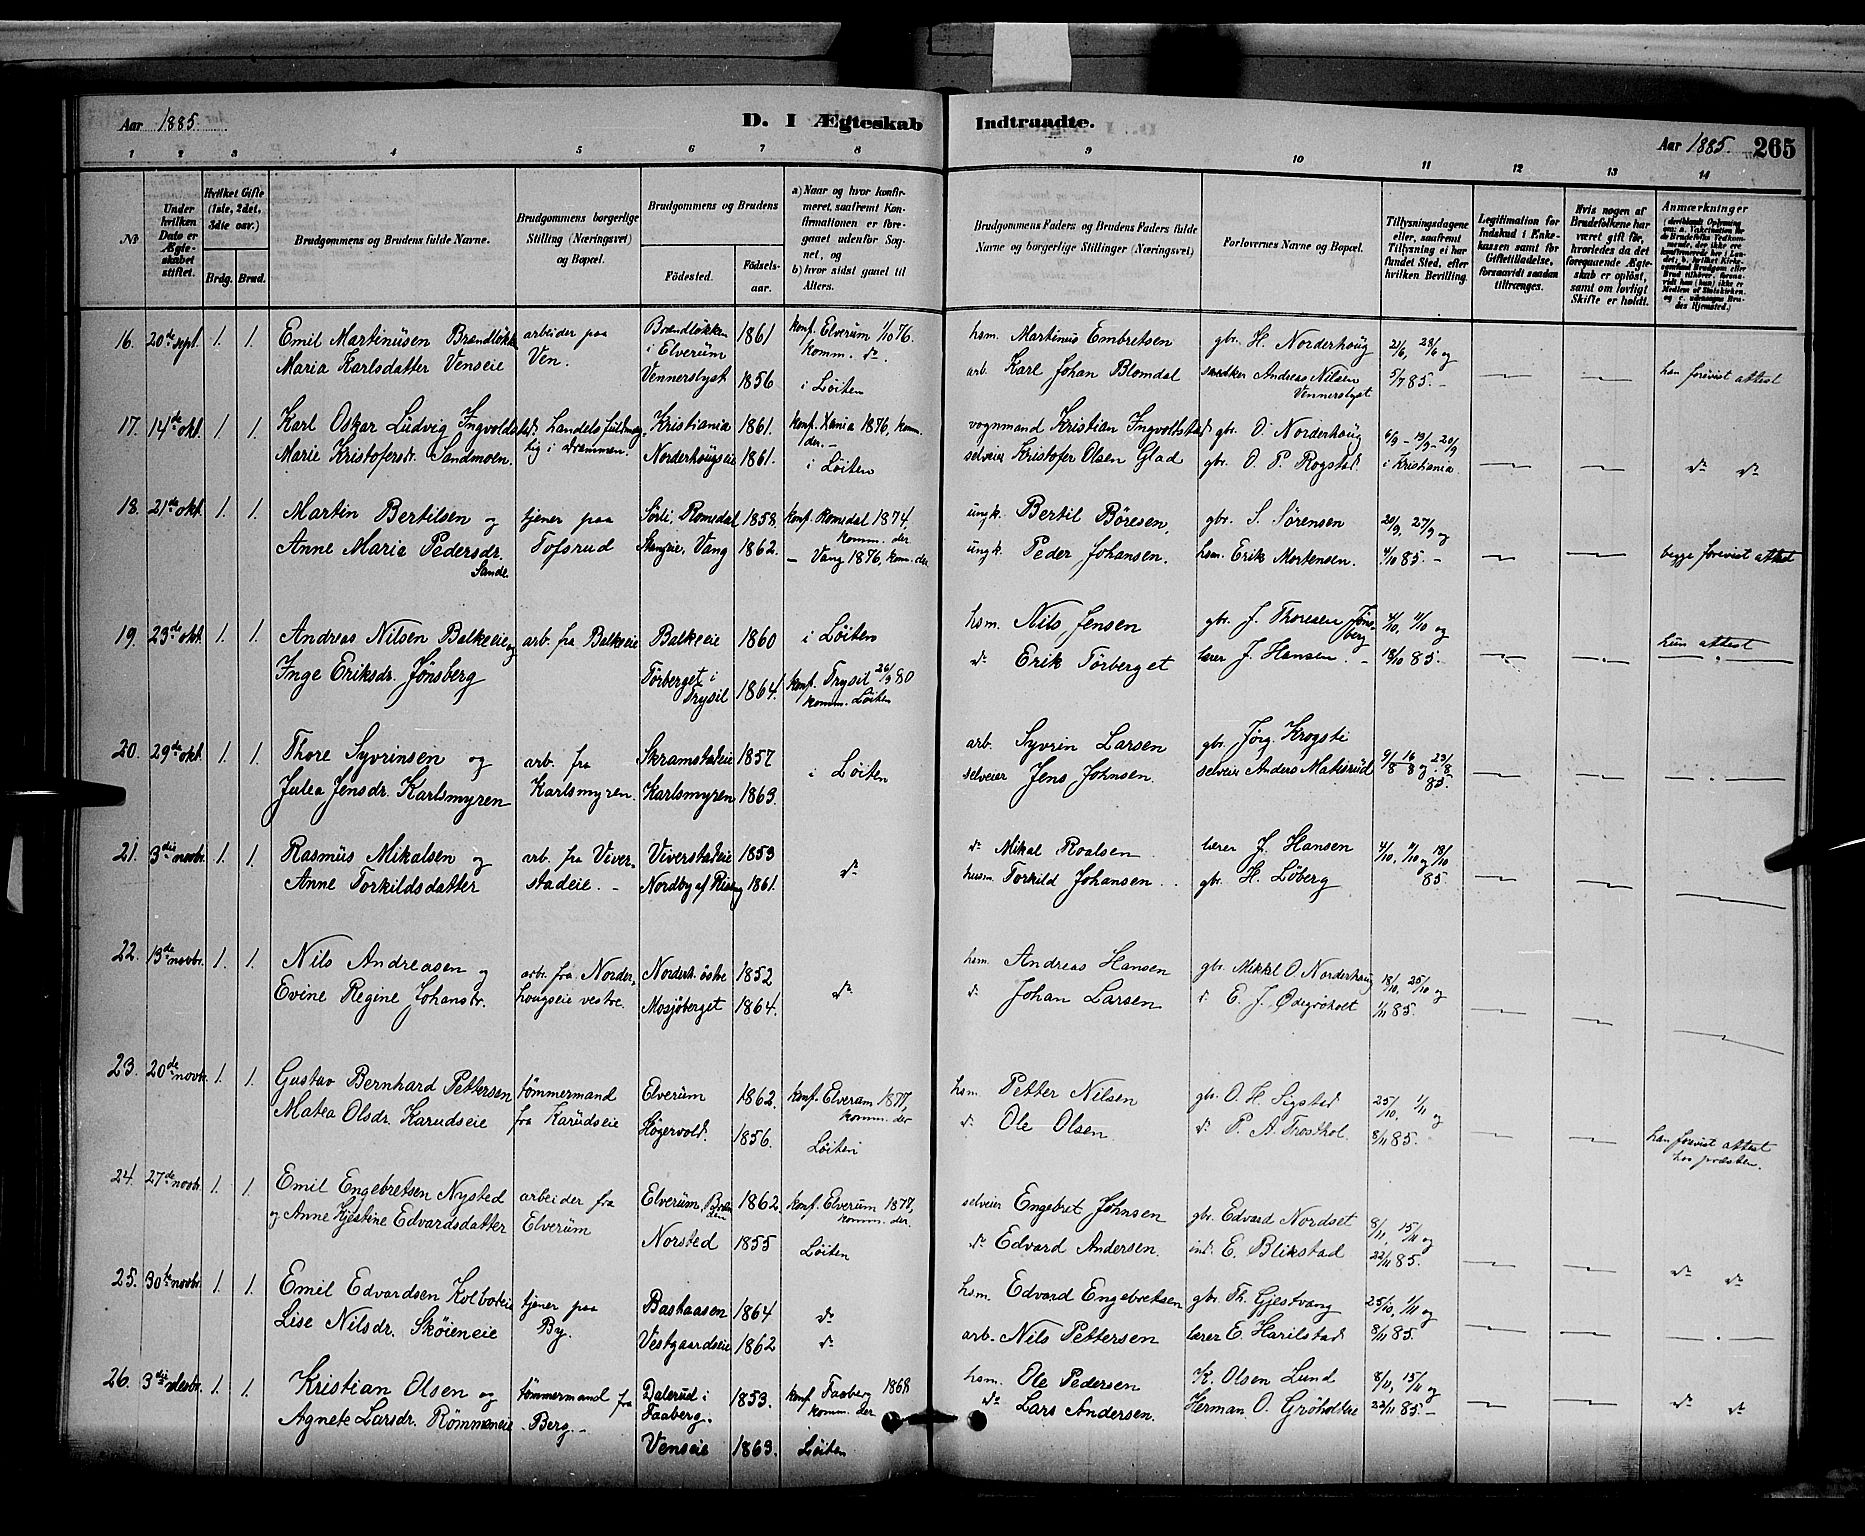 Aar 1885. D. I Ægteskab Indtraadte. Aar 1885. 265
1 2 3 4 5 6 7 8 9 10 11 12 13 14
№
Under hvilken Dato er Ægteskabet stiftet.
Hvilket Gifte (1ste, 2det, 3die osv.)
Brdg. Brud.
Brudgommens og Brudens fulde Navne.
Brudgommens borgerlige Stilling (Næringsvei) og Bopæl.
Brudgommens og Brudens
Fødested. Fødselsaar.
a) Naar og hvor konfirmeret, saafremt Konfirmationen er foregaaet udenfor Sognet, og
b) hvor sidst gaaet til Alters.
Brudgommens Faders og Brudens Faders fulde Navne og borgerlige Stillinger (Næringsvei)
Forlovernes Navne og Bopæl.
Tillysningsdagene eller, saafremt Tillysning ei har fundet Sted, efter hvilken Bevilling.
Legitimation for Indskud i Enkekassen samt for Giftetilladelse, forsaavidt saadan tiltrænges.
Hvis nogen af Brudefolkene har været gift før, hvorledes da det foregaaende Ægteskab er opløst, samt om lovligt Skifte er holdt.
Anmærkninger
16. 20de sept. 1. 1. Emil Martinusen Brændløkke arbeider paa Brændløkken 1861 konf. Elverum 1/10 76. hsm. Martinus Embretsen gbr. H. Norderhoug 21/6, 28/6 og
Maria Karlsdatter Venseie Ven. i Elverum komm. do.
Vennersbyst 1856 i Løiten arb. Karl Johan Blomdal snedker Andreas Nilsen Vennersbyst 5/7 85. — han forevist attest
17. 14de okt. 1. 1. Karl Oskar Ludvig Ingvoldstad, handelsfuldmæg- Kristiania 1861. konf. Xania 1876, komm. der. — vognmand Kristian Ingvoldstad gbr. O. Norderhoug 6/9 - 13/9 - 20/9
Marie Kristofersdr. Sandmoen. tig i Drammen. Norderhougseie 1861. i Løiten selveier Kristofer Olsen Glad gbr. O. P. Rogstad i Kristiania. do do
18. 21de okt. 1. 1. Martin Bertilsen og tjener paa Sørli, Romsdal 1858. konf. Romsdal 1874, komm. der ungk. Bertil Børesen, gbr. S. Sørensen 20/9, 27/9 og
Anne Maria Pedersdr. Sande. Tofsrud Vang 1862. — Vang 1876, komm. der ungk. Peder Johansen. hsm. Erik Mortensen. 4/10 85. — begge forevist attest
19. 23de okt. 1. 1. Andreas Nilsen Balkeeie og arb. fra Balkeeie Balkeeie 1860 i Løiten hsm. Nils Jensen gbr. J. Thoresen Jønsberg 4/10, 11/10 og hun attest
Inge Eriksdr. Jønsberg Tørberget i Trysil 1864. konf. Trysil 26/9 80 komm. Løiten do Erik Tørberget lærer J. Hansen. 18/10 85. —
20. 29de okt. 1. 1. Thore Syvrinsen og arb. fra Skramstadeie 1857 i Løiten arb. Syvrin Larsen gbr. Jørg. Krogsti 9/8 16/8 og 23/8
Julea Jensdr. Karlsmyren Karlsmyren. Karlsmyren 1863. selveier Jens Johnsen. selveier Anders Matisrud 85.
21. 3die novbr. 1. 1. Rasmus Mikalsen og arb. fra Viver- Viverstadeie 1853 do do Mikal Roalsen lærer J. Hansen 4/10, 11/10 og 18/10
Anne Torkildsdatter stadeie. — Nordby af Riseng 1861. husm. Torkild Johansen. gbr. H. Løberg 85.
22. 13de novbr. 1. 1. Nils Andreasen og arb. fra Norder- Norderh. østre 1852 do hsm. Andreas Hansen gbr. Mikkel O. Norderhoug 18/10, 25/10 og
Evine Regine Johansdr. hougseie vestre. Mosjøberget 1864. do Johan Larsen do E. J. Ødegrøholt 1/11 85.
23. 20de novbr. 1. 1. Gustav Bernhard Pettersen tømmermand Elverum 1862. konf. Elverum 1877, komm. der hsm. Petter Nilsen gbr. O. H. Sigstad 25/10, 1/11 og
Matea Olsdr. Karudseie fra Karudseie Høgervold. 1856. Løiten do Ole Olsen. do P. A. Trosthol. 8/11 85. han forevist attest hos præsten.
24. 27de novbr. 1. 1. Emil Engebretsen Nysted arbeider fra Elverum, 1862. konf. Elverum 1877, komm. der. selveier Engebret Johnsen gbr. Edvard Nordset 8/11, 15/11 og
og Anne Kjestine Edvardsdatter Elverum Norsted 1855 Løiten do Edvard Andersen. ind. E. Blikstad 22/11 85. do do
25. 30te novbr. 1. 1. Emil Edvardsen Kolboteie tjener paa Bastaasen 1864 do hsm. Edvard Engebretsen gbr. Th. Gjestvang 25/10, 1/11 og
Lise Nilsdr. Skøieneie By. Vestgaardseie 1862 do arb. Nils Pettersen lærer E. Harilstad 8/11 85.
26. 3die desbr. 1. 1. Kristian Olsen og tømmermand fra Dalerud i Faaberg. 1853. konf. Faaberg 1868 komm. der hsm. Ole Pedersen K. Olsen Lund 8/11, 15/11 og
Agnete Larsdr. Rømmeneie Berg. — Venseie 1863. Løiten do Lars Andersen. Herman O. Grøholtie 22/11 85. — do do